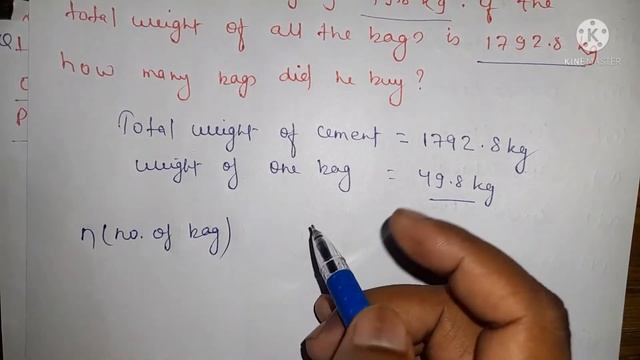 49.8 kg. if the
total weight of all the bags is 1792.8 kg
how many bags did he buy?
Total weight of cement = 1792.8 kg
weight of one bag = 49.8 kg
n(no. of bag)
KINEMASTER